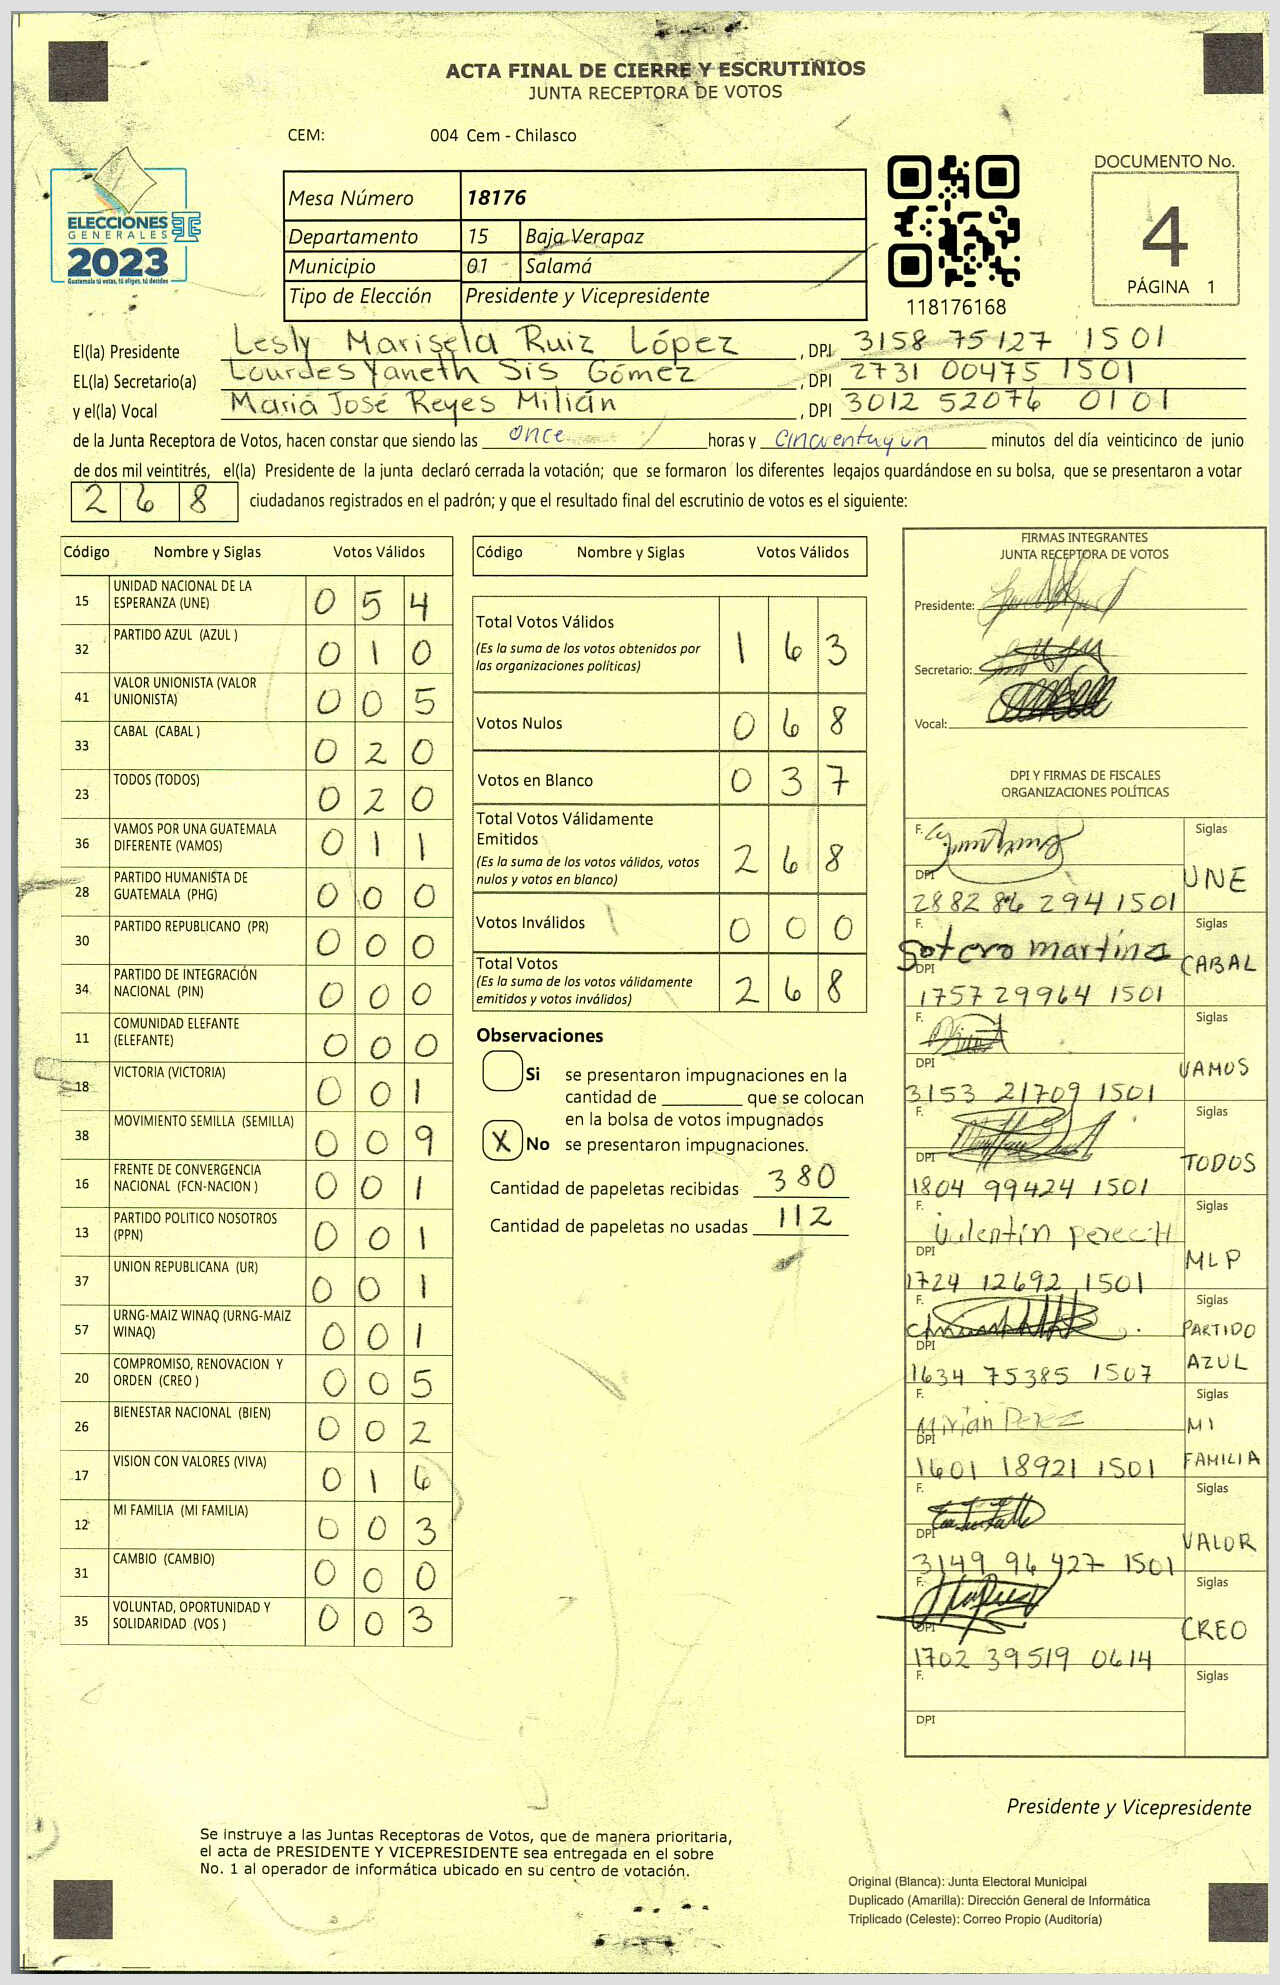 ACTA FINAL DE CIERRE Y ESCRUTINIOS
JUNTA RECEPTORA DE VOTOS
CEM: 004 Cem - Chilasco
ELECCIONES
GENERALES
2023
Guatemala tú votas, tú eliges, tú decides
Mesa Número 18176
Departamento 15 Baja Verapaz
Municipio 01 Salamá
Tipo de Elección Presidente y Vicepresidente
118176168
DOCUMENTO No.
4
PÁGINA 1
El(la) Presidente Lesly Marisela Ruiz López , DPI 3158 75127 1501
EL(la) Secretario(a) Lourdes Yaneth Sis Gómez , DPI 2731 00475 1501
y el(la) Vocal María José Reyes Milián , DPI 3012 52076 0101
de la Junta Receptora de Votos, hacen constar que siendo las once horas y cincuentayun minutos del día veinticinco de junio
de dos mil veintitrés, el(la) Presidente de la junta declaró cerrada la votación; que se formaron los diferentes legajos guardándose en su bolsa, que se presentaron a votar
268 ciudadanos registrados en el padrón; y que el resultado final del escrutinio de votos es el siguiente:
Código Nombre y Siglas Votos Válidos
15 UNIDAD NACIONAL DE LA ESPERANZA (UNE) 0 5 4
32 PARTIDO AZUL (AZUL ) 0 1 0
41 VALOR UNIONISTA (VALOR UNIONISTA) 0 0 5
33 CABAL (CABAL ) 0 2 0
23 TODOS (TODOS) 0 2 0
36 VAMOS POR UNA GUATEMALA DIFERENTE (VAMOS) 0 1 1
28 PARTIDO HUMANISTA DE GUATEMALA (PHG) 0 0 0
30 PARTIDO REPUBLICANO (PR) 0 0 0
34 PARTIDO DE INTEGRACIÓN NACIONAL (PIN) 0 0 0
11 COMUNIDAD ELEFANTE (ELEFANTE) 0 0 0
18 VICTORIA (VICTORIA) 0 0 1
38 MOVIMIENTO SEMILLA (SEMILLA) 0 0 9
16 FRENTE DE CONVERGENCIA NACIONAL (FCN-NACION ) 0 0 1
13 PARTIDO POLITICO NOSOTROS (PPN) 0 0 1
37 UNION REPUBLICANA (UR) 0 0 1
57 URNG-MAIZ WINAQ (URNG-MAIZ WINAQ) 0 0 1
20 COMPROMISO, RENOVACION Y ORDEN (CREO ) 0 0 5
26 BIENESTAR NACIONAL (BIEN) 0 0 2
17 VISION CON VALORES (VIVA) 0 1 6
12 MI FAMILIA (MI FAMILIA) 0 0 3
31 CAMBIO (CAMBIO) 0 0 0
35 VOLUNTAD, OPORTUNIDAD Y SOLIDARIDAD (VOS ) 0 0 3
Código Nombre y Siglas Votos Válidos
Total Votos Válidos 1 6 3
(Es la suma de los votos obtenidos por
las organizaciones políticas)
Votos Nulos 0 6 8
Votos en Blanco 0 3 7
Total Votos Válidamente
Emitidos 2 6 8
(Es la suma de los votos válidos, votos
nulos y votos en blanco)
Votos Inválidos 0 0 0
Total Votos 2 6 8
(Es la suma de los votos válidamente
emitidos y votos inválidos)
Observaciones
Si se presentaron impugnaciones en la
cantidad de ________ que se colocan
en la bolsa de votos impugnados
X No se presentaron impugnaciones.
Cantidad de papeletas recibidas 380
Cantidad de papeletas no usadas 112
FIRMAS INTEGRANTES
JUNTA RECEPTORA DE VOTOS
Presidente:
Secretario:
Vocal:
DPI Y FIRMAS DE FISCALES
ORGANIZACIONES POLÍTICAS
F. Siglas
DPI UNE
2882 86 294 1501
F. Sotero martínez Siglas
DPI CABAL
1757 29964 1501
F. Siglas
DPI VAMOS
3153 21709 1501
F. Siglas
DPI TODOS
1804 99424 1501
F. Valentín Siglas
DPI MLP
1724 12692 1501
F. Siglas
DPI PARTIDO AZUL
1634 75385 1507
F. Mirian Perez Siglas
DPI MI FAMILIA
1601 18921 1501
F. Siglas
DPI VALOR
3149 96 427 1501
F. Siglas
DPI CREO
1702 39519 0614
F. Siglas
DPI
Presidente y Vicepresidente
Se instruye a las Juntas Receptoras de Votos, que de manera prioritaria,
el acta de PRESIDENTE Y VICEPRESIDENTE sea entregada en el sobre
No. 1 al operador de informática ubicado en su centro de votación.
Original (Blanca): Junta Electoral Municipal
Duplicado (Amarilla): Dirección General de Informática
Triplicado (Celeste): Correo Propio (Auditoría)